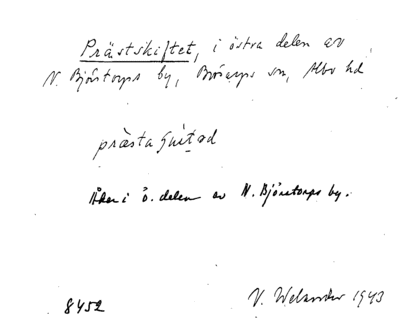 Prästskiftet, i östra delen av
N. Björstorps by, sn, Albo hd
prästa
Åker i ö. delen av N. Björstorps by.
8452
V. Welander 1943